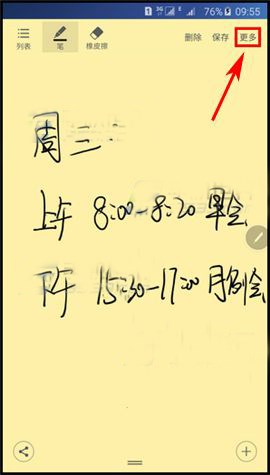 1 3G E 76% 09:55
列表 笔 橡皮擦 删除 保存 更多
周三
上午 8:00-8:20 早会
下午 15:30-17:00 月例会